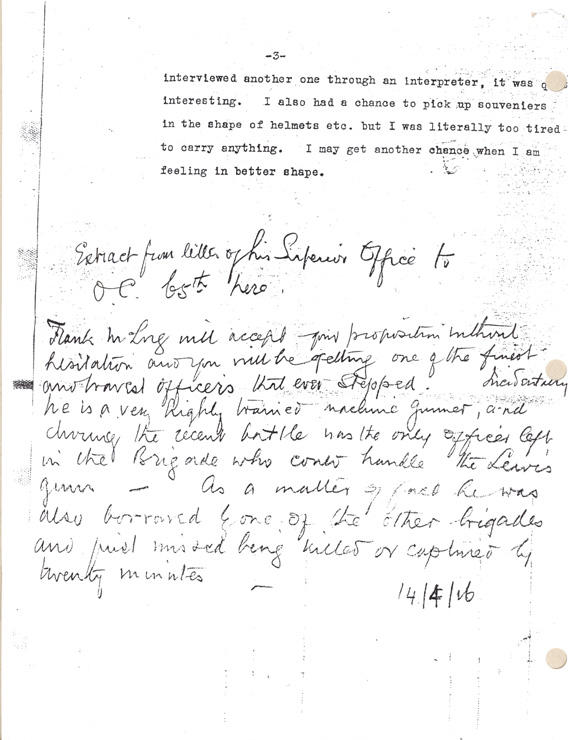 -3-
interviewed another one through an interpreter, it was
interesting. I also had a chance to pick up souveniers
in the shape of helmets etc. but I was literally too tired
to carry anything. I may get another chance when I am
feeling in better shape.
Extract from letter of his Superior Office to
O.C. 65th here.
Frank McLorg will accept your proposition without
hesitation and you will be getting one of the finest
and bravest officers that ever stepped. Incidentally
he is a very highly trained machine gunner, and
during the recent battle was the only officer left
in the Brigade who could handle the Lewis
gun — As a matter of fact he was
also borrowed by one of the other brigades
and just missed being killed or captured by
twenty minutes —
14/4/16